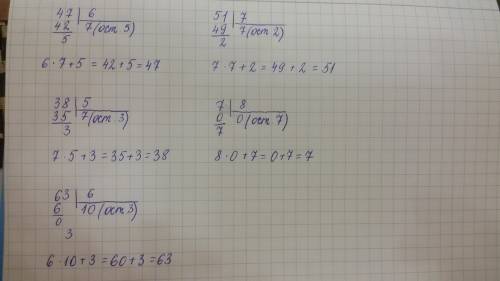 47 | 6
42 7 (ост 5)
5
6 · 7 + 5 = 42 + 5 = 47
51 | 7
49 7 (ост 2)
2
7 · 7 + 2 = 49 + 2 = 51
38 | 5
35 7 (ост 3)
3
7 · 5 + 3 = 35 + 3 = 38
7 | 8
0 0 (ост 7)
7
8 · 0 + 7 = 0 + 7 = 7
63 | 6
6 10 (ост 3)
0
3
6 · 10 + 3 = 60 + 3 = 63